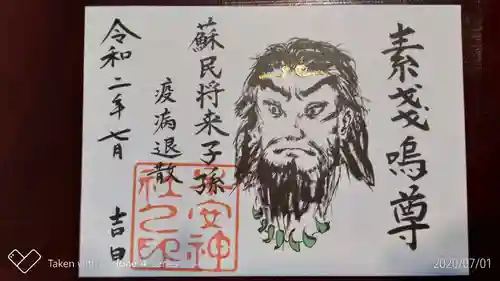 素戔嗚尊
蘇民将来子孫
疫病退散
令和二年七月
吉日
安神
社之印
Taken with
2020/07/01